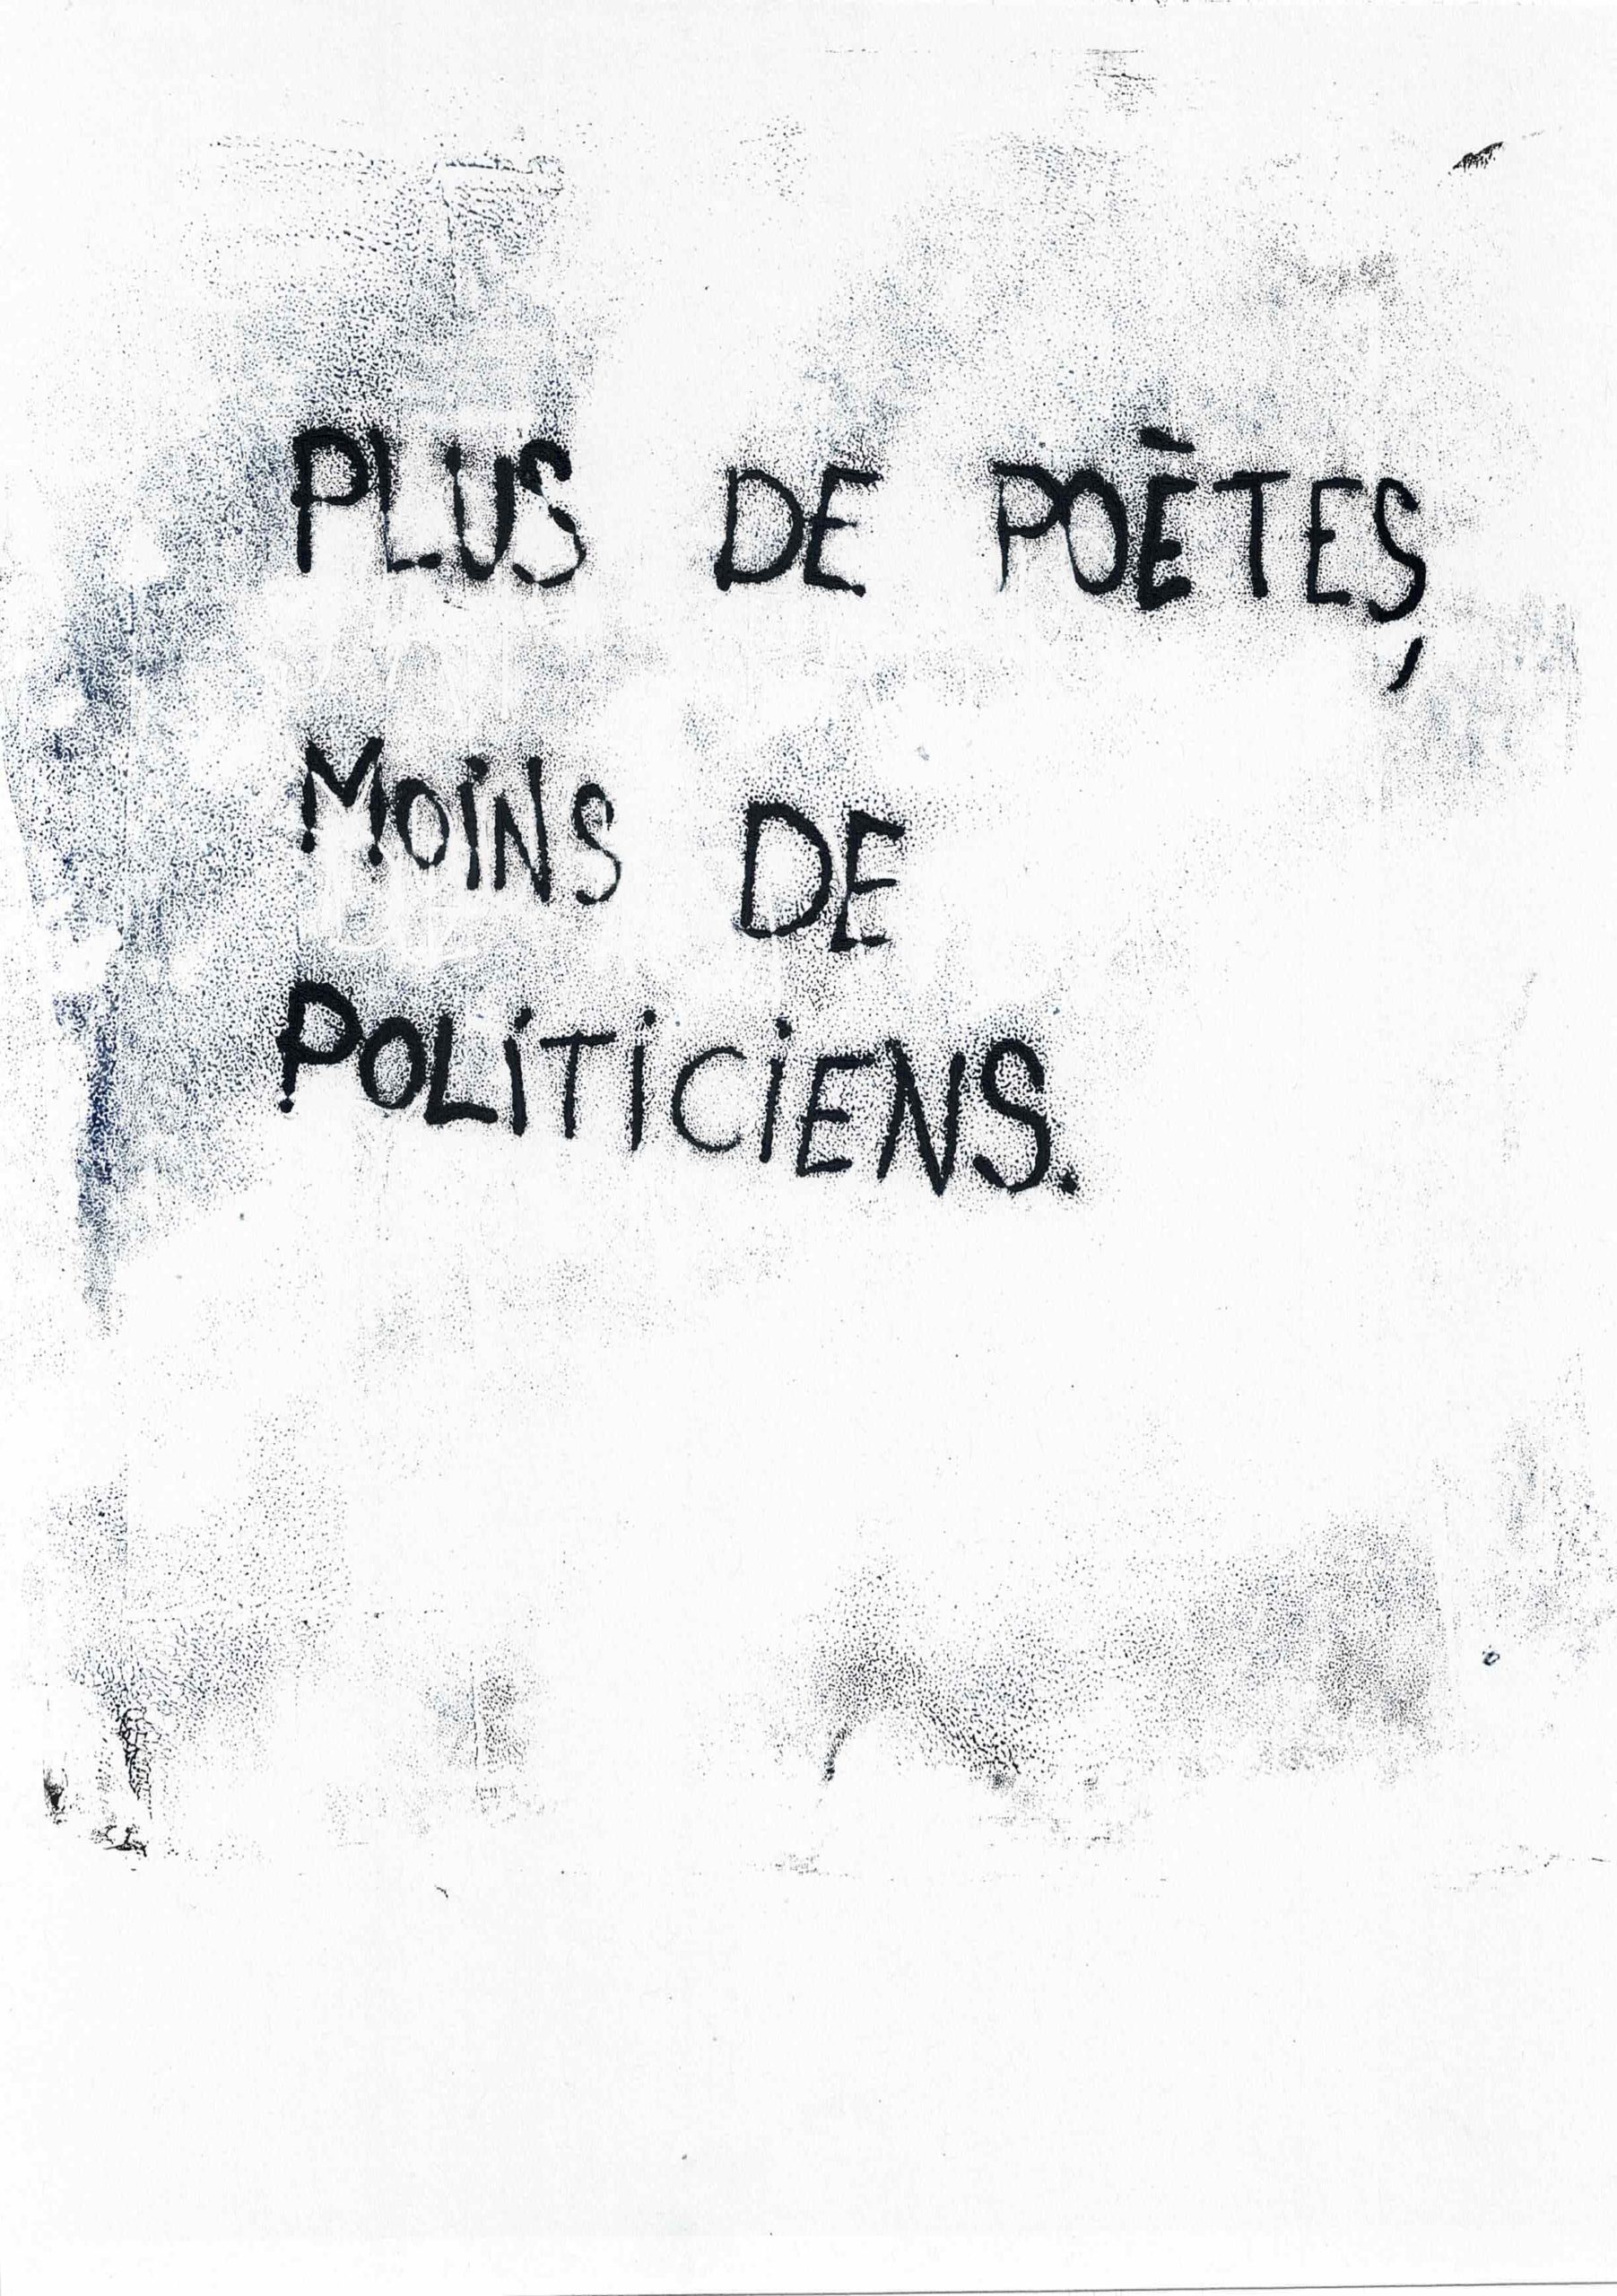 PLUS DE POÈTES,
MOiNS DE
POLiTiCiENS.